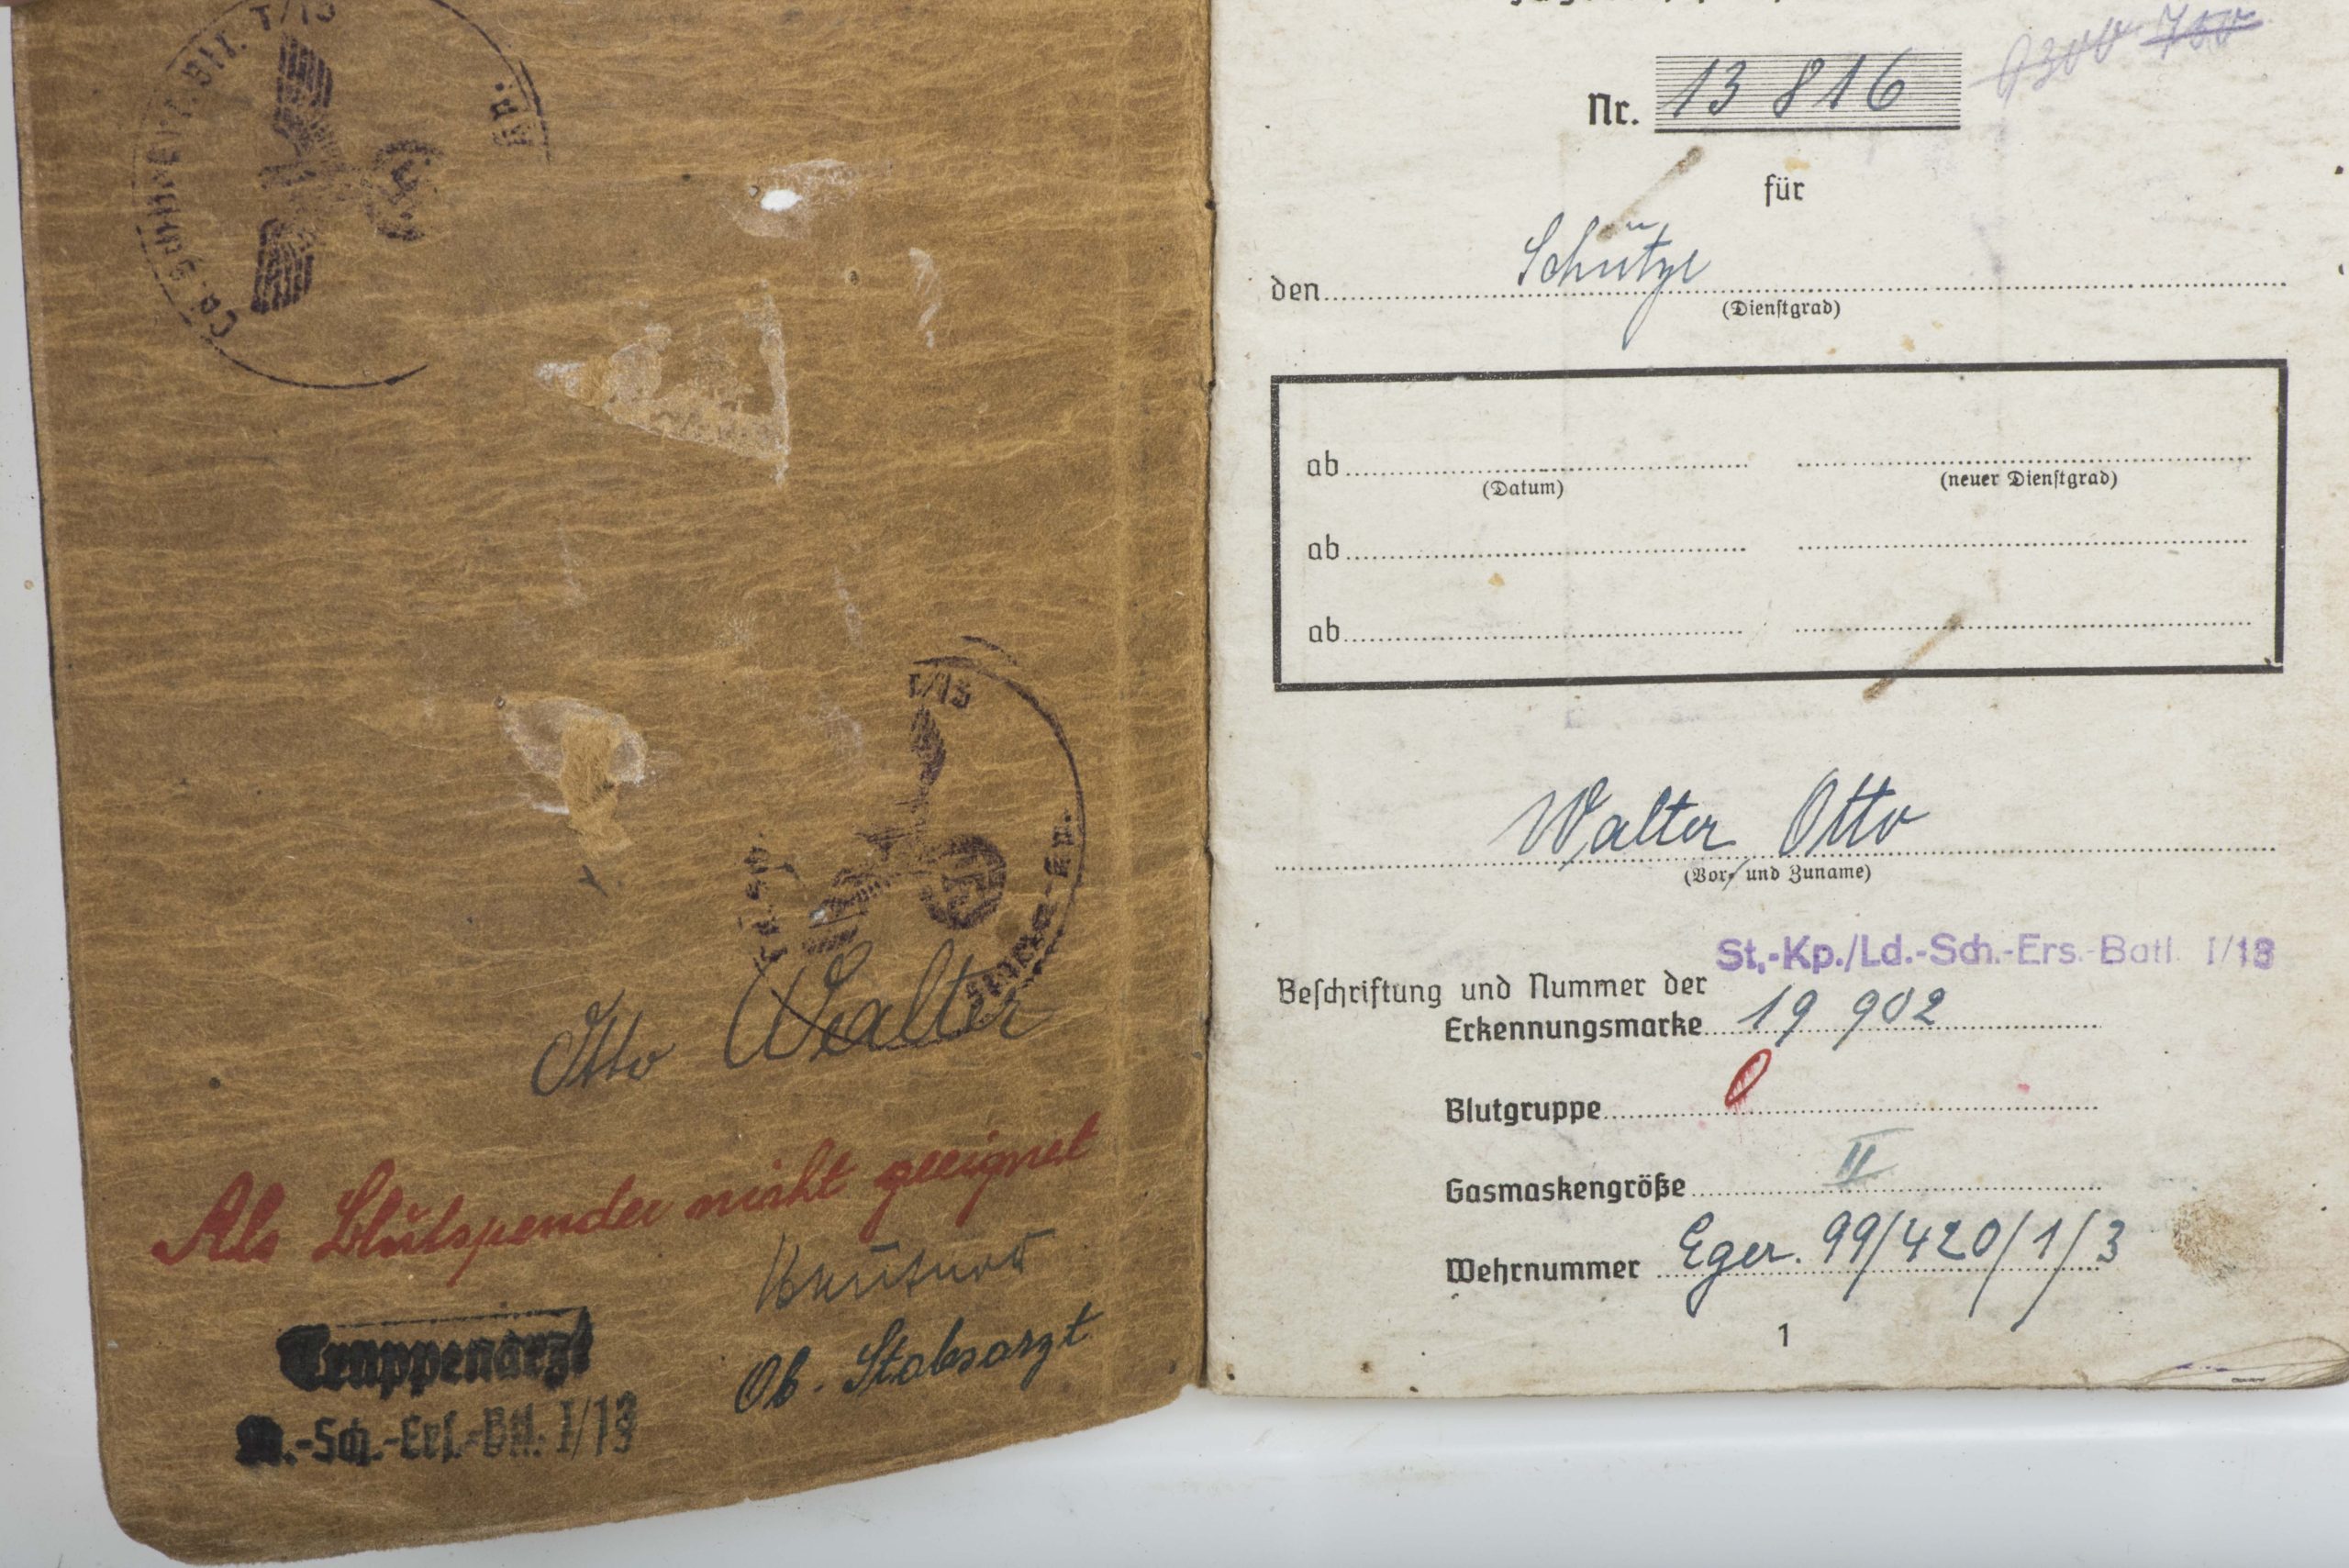 T/13
Kp.
I/13
Otto Walter
Als Blutspender nicht geeignet
Ob. Stabsarzt
Truppenarzt
-Sch.-Erſ.-Btl. I/13
Nr. 13 816
für
den Schütze
(Dienſtgrad)
ab
(Datum) (neuer Dienſtgrad)
ab
ab
Walter Otto
(Vor- und Zuname)
St.-Kp./Ld.-Sch.-Ers.-Batl. I/13
Beſchriftung und Nummer der
Erkennungsmarke 19 902
Blutgruppe 0
Gasmaskengröße II
Wehrnummer Eger. 99/420/1/3
1